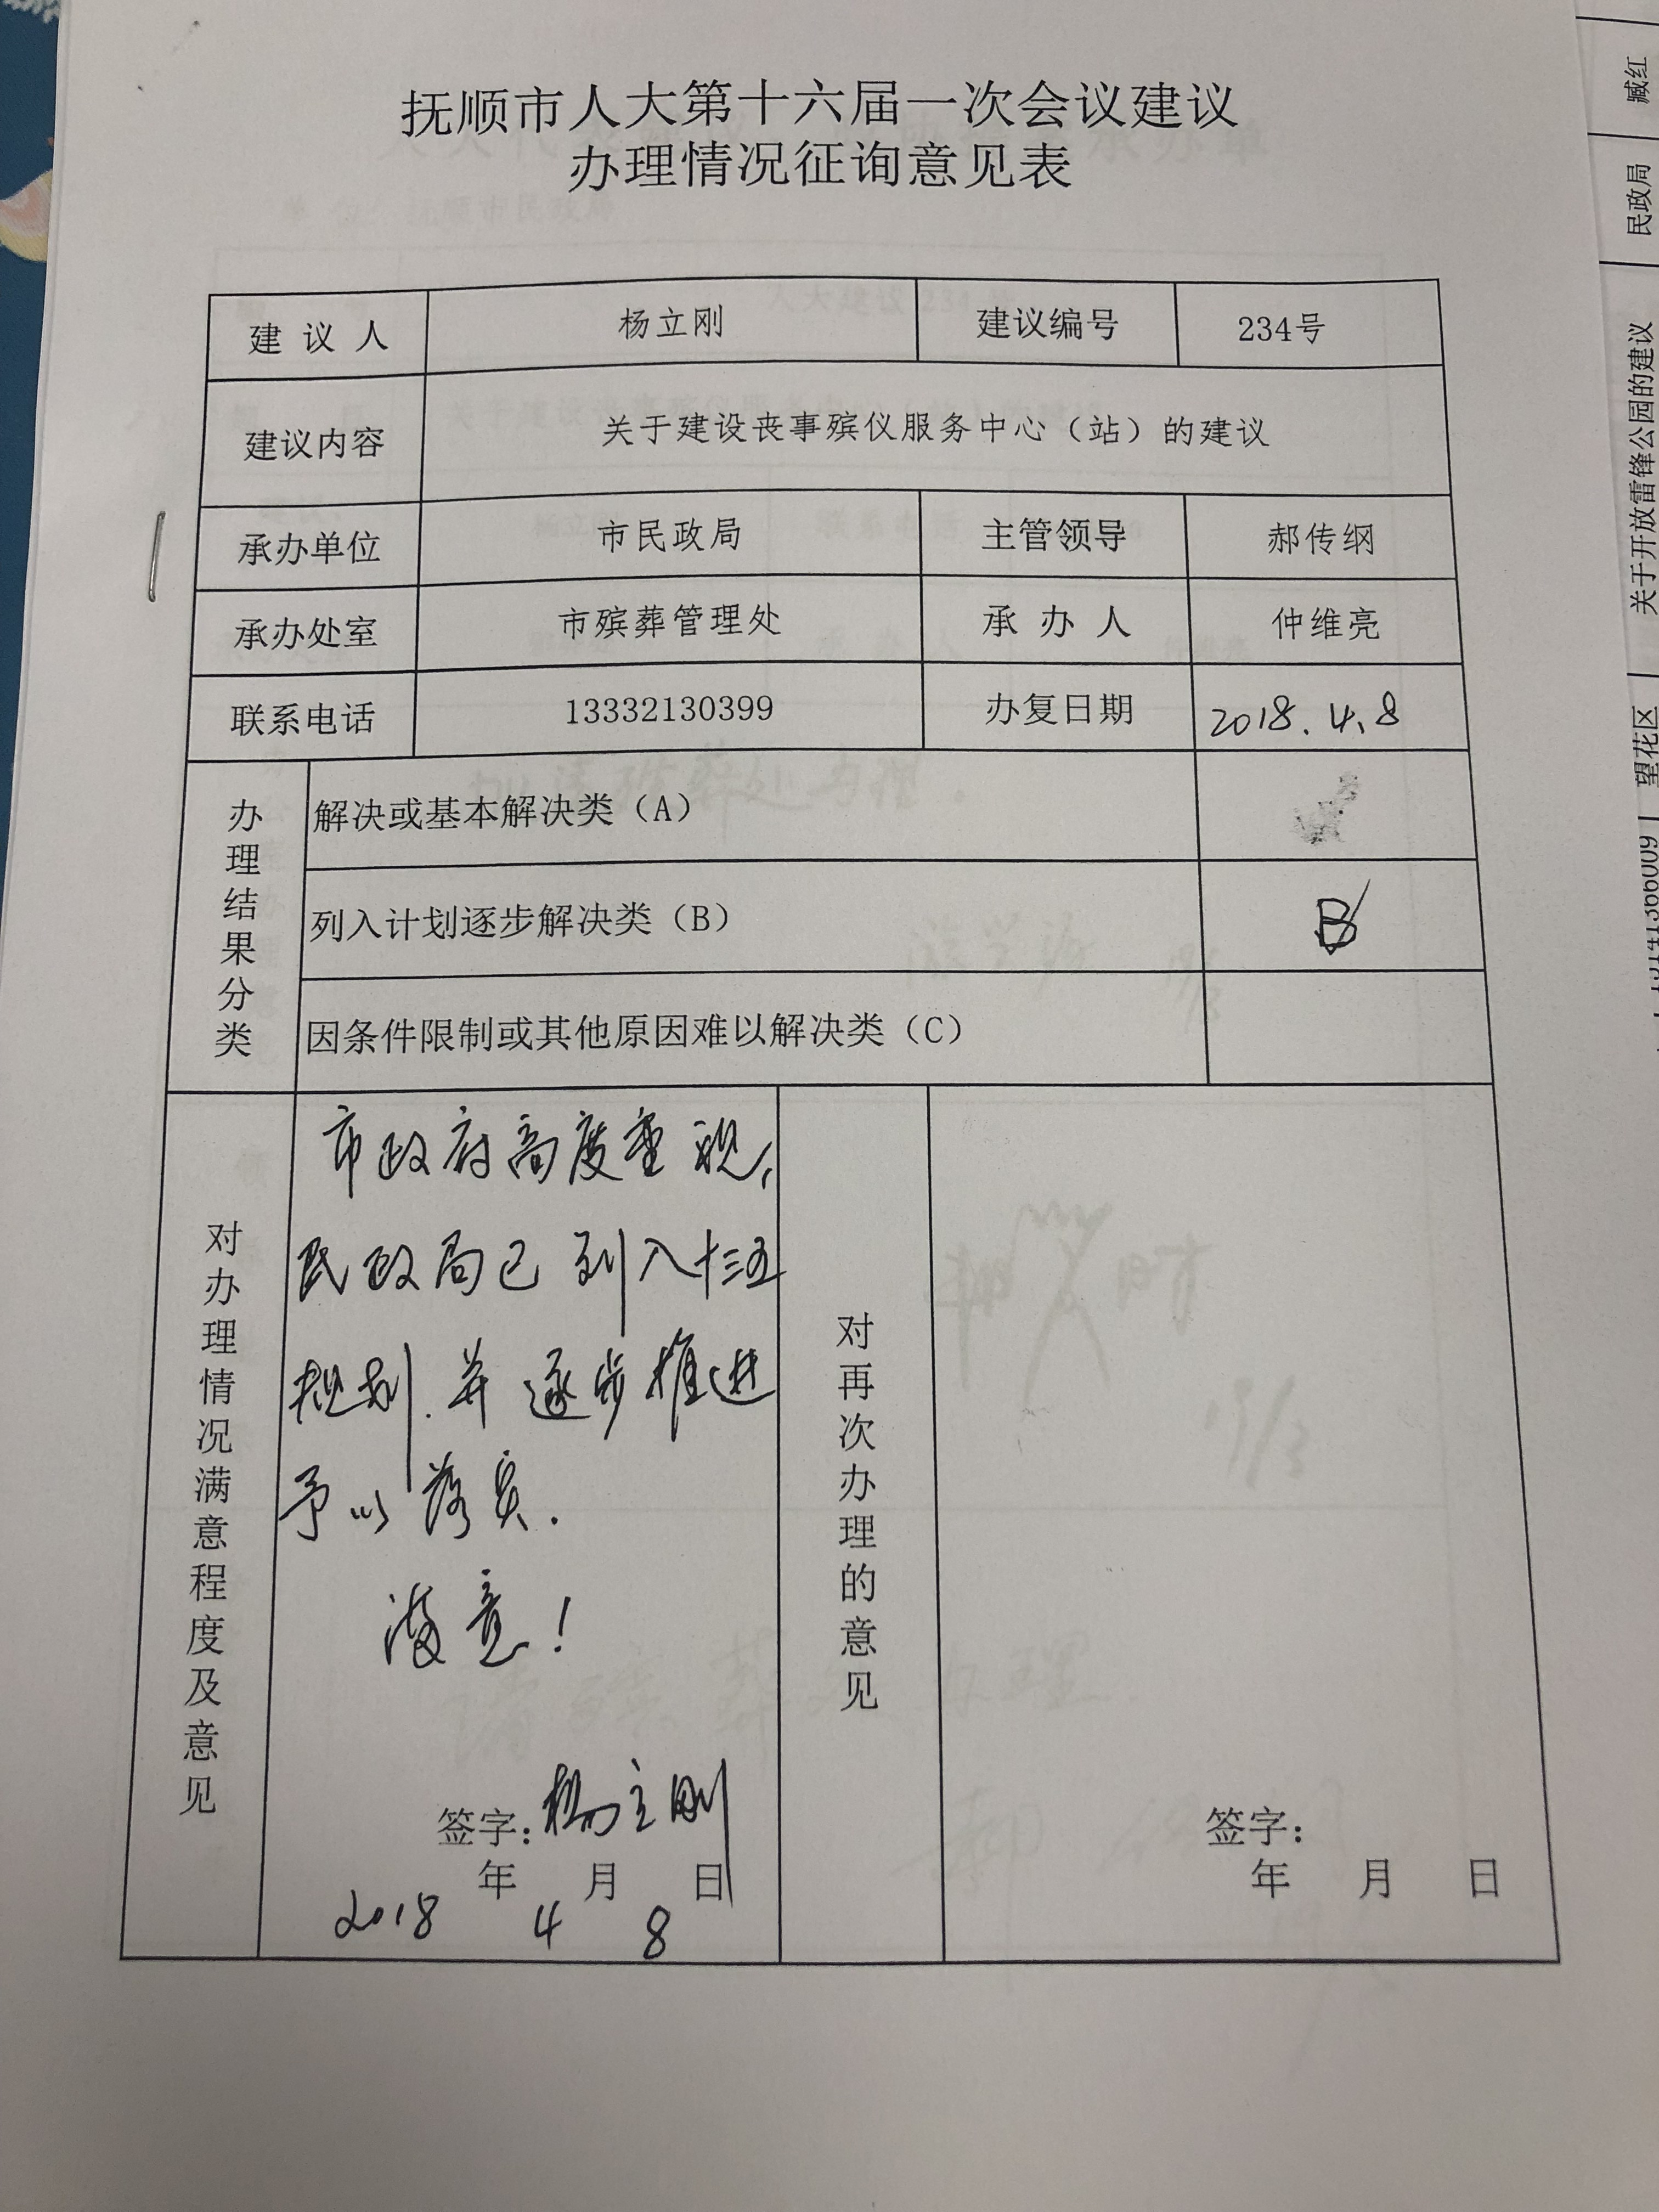 抚顺市人大第十六届一次会议建议
办理情况征询意见表
建 议 人 杨立刚 建议编号 234号
建议内容 关于建设丧事殡仪服务中心（站）的建议
承办单位 市民政局 主管领导 郝传纲
承办处室 市殡葬管理处 承 办 人 仲维亮
联系电话 13332130399 办复日期 2018.4.8
办理结果分类
解决或基本解决类（A）
列入计划逐步解决类（B） B
因条件限制或其他原因难以解决类（C）
对办理情况满意程度及意见
市政府高度重视，
民政局已列入十三五
规划.并逐步推进
予以落实.
满意！
签字：杨立刚
年 月 日
2018 4 8
对再次办理的意见
签字：
年 月 日
臧红
民政局
关于开放雷锋公园的建议
望花区